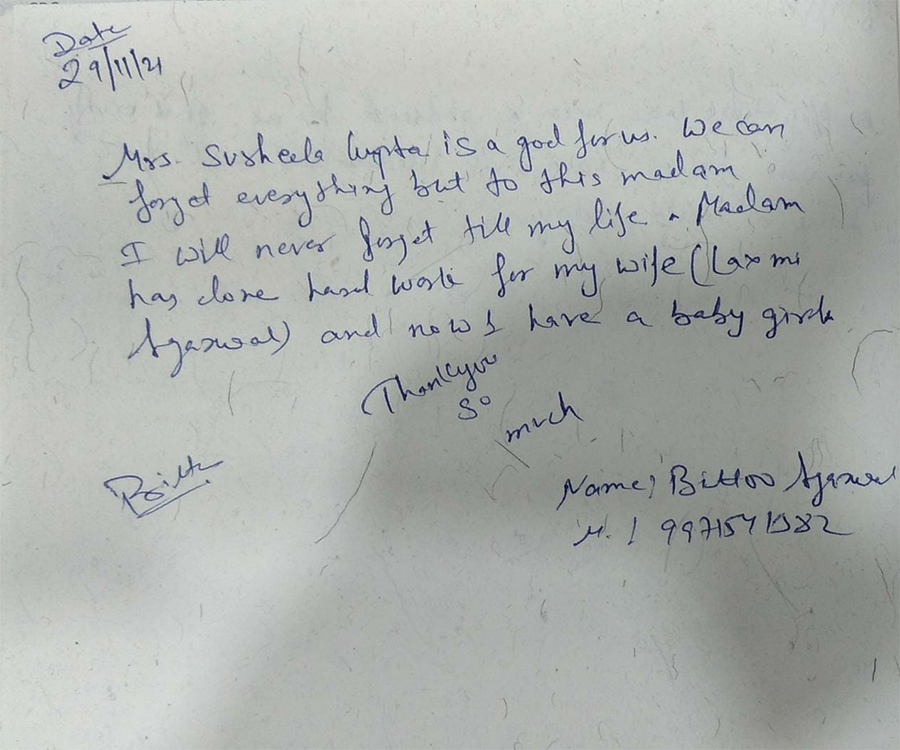 Date
29/11/21
Mrs. Susheela Gupta is a god for us. We can
forget everything but to this madam
I will never forget till my life. Madam
has done hard work for my wife (Laxmi
Agarwal) and now I have a baby girl
Thankyou
so
much
Name: Bittoo Agarwal
M. :